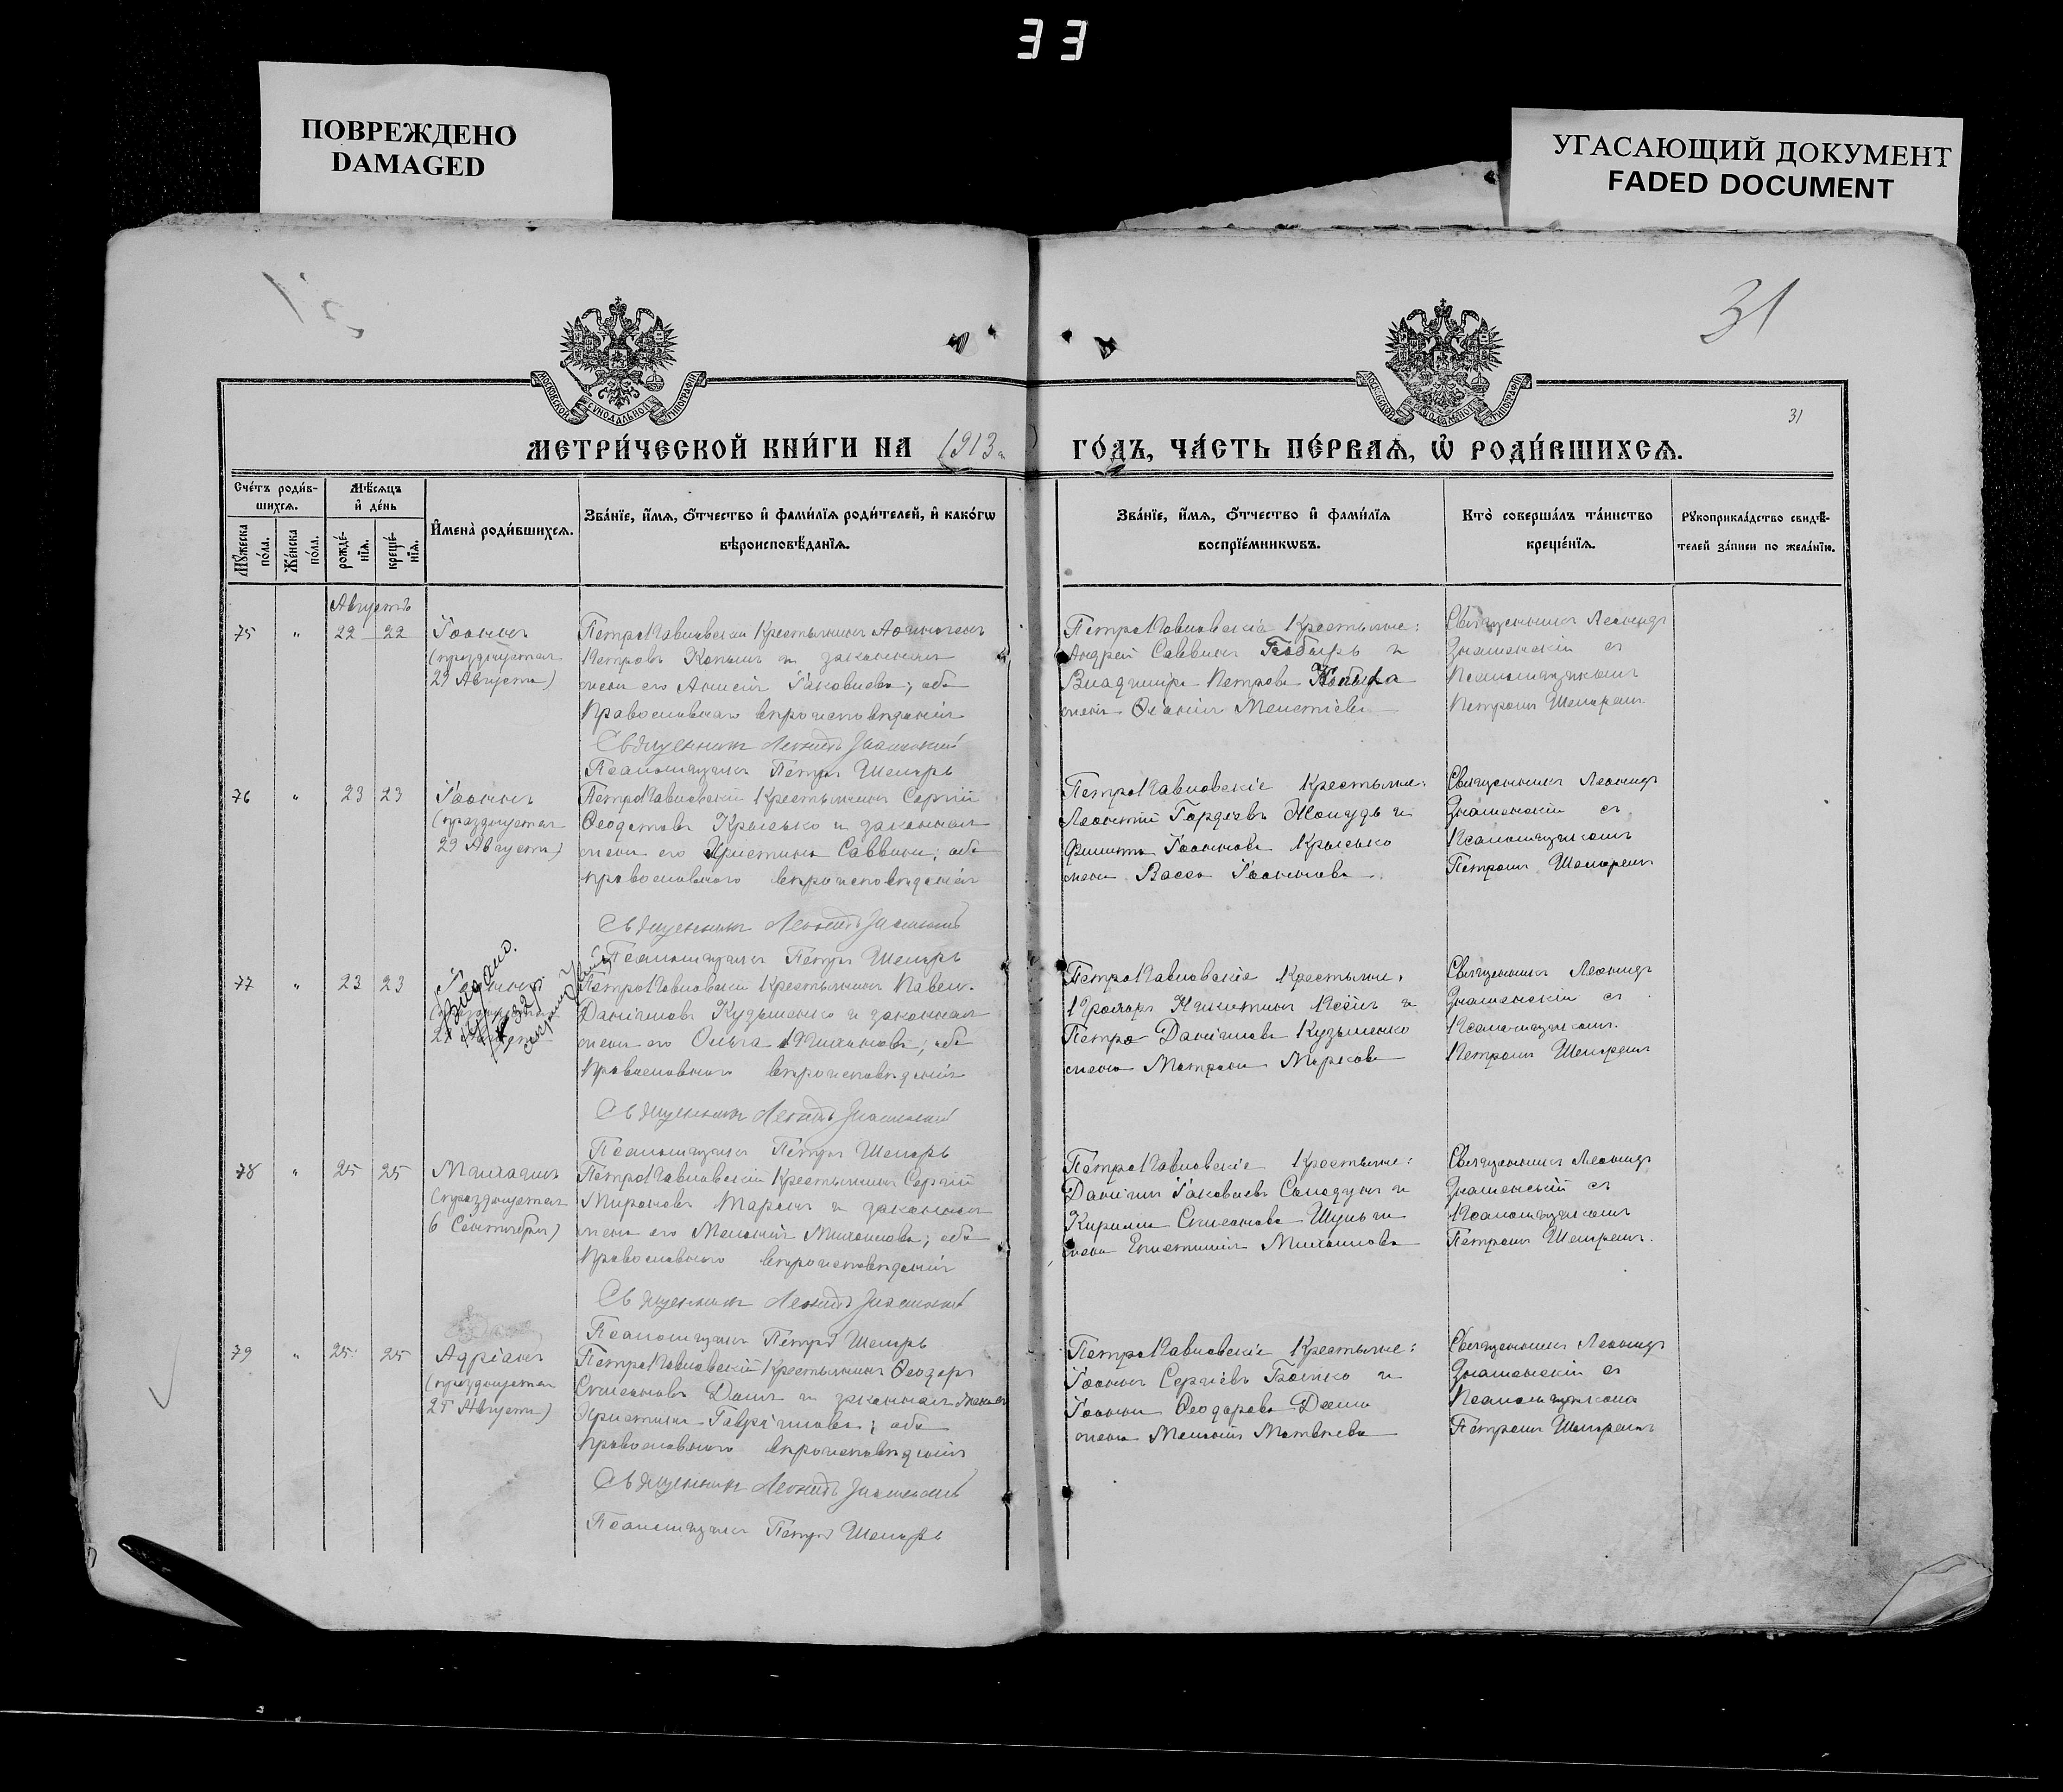 33
ПОВРЕЖДЕНО
DAMAGED
УГАСАЮЩИЙ ДОКУМЕНТ
FADED DOCUMENT
31
31
МОСКОВСКОЙ СѴНОДАЛЬНОЙ ТИПОГРАФІИ
МОСКОВСКОЙ СѴНОДАЛЬНОЙ ТИПОГРАФІИ
МЕТРИ́ЧЕСКОЙ КНИ́ГИ НА 1913 г.
ГО́ДЪ, ЧА́СТЬ ПЕ́РВАѦ, Ѡ҆ РОДИ́ВШИХСѦ.
Сче́тъ роди́в-
шихсѧ.
Мѣ́сѧцъ
и҆ де́нь
Мꙋ́жеска по́ла.
Же́нска по́ла.
рожде́-
нїѧ.
креще́-
нїѧ.
И҆мена̀ роди́вшихсѧ.
Зва́нїе, и҆́мѧ, ѻ҆́тчество и҆ фами́лїѧ роди́телей, и҆ како́гѡ
вѣроисповѣ́данїѧ.
Зва́нїе, и҆́мѧ, ѻ҆́тчество и҆ фами́лїѧ
воспрїе́мникѡвъ.
Кто̀ соверша́лъ та́инство
креще́нїѧ.
Рꙋкоприкла́дство свидѣ́-
телей за́писи по жела́нїю.
Августъ
75 " 22 22 Іоаннъ
(празднуется
29 Августа)
ПетроПавловскій Крестьянинъ Аѳиногенъ
Петровъ Копылъ и законная
жена его Анисія Іаковлева; оба
Православнаго вѣроисповѣданія
Священникъ Леонидъ Знаменскій
Псаломщикъ Петръ Шемаръ
ПетроПавловскіе Крестьяне:
Андрей Саввинъ Бобырь и
Владиміра Петрова Копыла
жена
Священникъ Леонидъ
Знаменскій съ
Псаломщикомъ
Петромъ
76 " 23 23 Іоаннъ
(празднуется
29 Августа)
ПетроПавловскій Крестьянинъ Сергій
Ѳеодотовъ Крысько и законная
жена его Христина Саввина; оба
православнаго вѣроисповѣданія
Священникъ Леонидъ Знаменскій
Псаломщикъ Петръ
ПетроПавловскіе Крестьяне:
Леонтій Гордіевъ и
Филиппа Іоаннова Крысько
жена Васса Іоаннова
Священникъ Леонидъ
Знаменскій съ
Псаломщикомъ
Петромъ
77 " 23 23 Іоаннъ
Выдано.
ПетроПавловскій Крестьянинъ Павелъ
Даніиловъ Кузьменко и законная
жена его Ольга; оба
Православнаго вѣроисповѣданія
Священникъ Леонидъ Знаменскій
Псаломщикъ Петръ
ПетроПавловскіе Крестьяне:
Прохоръ Никитинъ и
Петра Даніилова Кузьменко
жена Матрона Маркова
Священникъ Леонидъ
Знаменскій съ
Псаломщикомъ
Петромъ
78 " 25 25 Михаилъ
(празднуется
6 Сентября)
ПетроПавловскій Крестьянинъ Сергій
Мироновъ и законная
жена его Меланія Михаилова; оба
Православнаго вѣроисповѣданія
Священникъ Леонидъ Знаменскій
Псаломщикъ Петръ
ПетроПавловскіе Крестьяне:
Даніилъ Іаковлевъ Солодунъ и
Кирилла Симеонова Шульги
жена Епистимія Михаилова
Священникъ Леонидъ
Знаменскій съ
Псаломщикомъ
Петромъ
79 " 25 25 Адріанъ
(празднуется
26 Августа)
ПетроПавловскій Крестьянинъ Ѳеодоръ
Симеоновъ и законная жена его
Христина Гавріилова; оба
Православнаго вѣроисповѣданія
Священникъ Леонидъ Знаменскій
Псаломщикъ Петръ
ПетроПавловскіе Крестьяне:
Іоаннъ Сергіевъ Бойко и
Іоанна Ѳеодорова
жена Меланія Матвѣева
Священникъ Леонидъ
Знаменскій съ
Псаломщикомъ
Петромъ